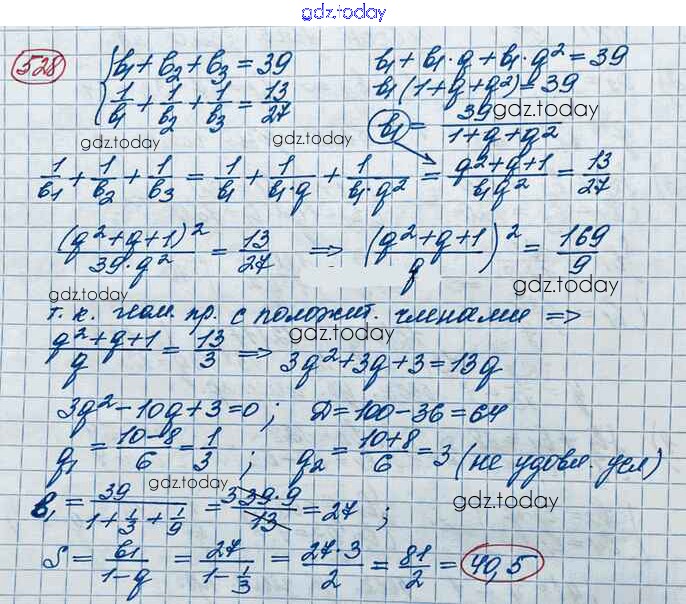 gdz.today
528 { b₁ + b₂ + b₃ = 39
1/b₁ + 1/b₂ + 1/b₃ = 13/27
b₁ + b₁·q + b₁·q² = 39
b₁(1+q+q²) = 39
b₁ = 39/(1+q+q²)
gdz.today
gdz.today
gdz.today
1/b₁ + 1/b₂ + 1/b₃ = 1/b₁ + 1/(b₁·q) + 1/(b₁·q²) = (q²+q+1)/(b₁q²) = 13/27
gdz.today
(q²+q+1)²/(39·q²) = 13/27 ⇒ ((q²+q+1)/q)² = 169/9
gdz.today
gdz.today
т.к. геом. пр. с положит. членами ⇒
gdz.today
(q²+q+1)/q = 13/3 ⇒ 3q²+3q+3 = 13q
3q²−10q+3=0; Д=100−36=64
q₁ = (10−8)/6 = 1/3; q₂ = (10+8)/6 = 3 (не удовл. усл)
gdz.today
gdz.today
b₁ = 39/(1+1/3+1/9) = 3 39·9/13 = 27;
S = b₁/(1−q) = 27/(1−1/3) = 27·3/2 = 81/2 = 40,5